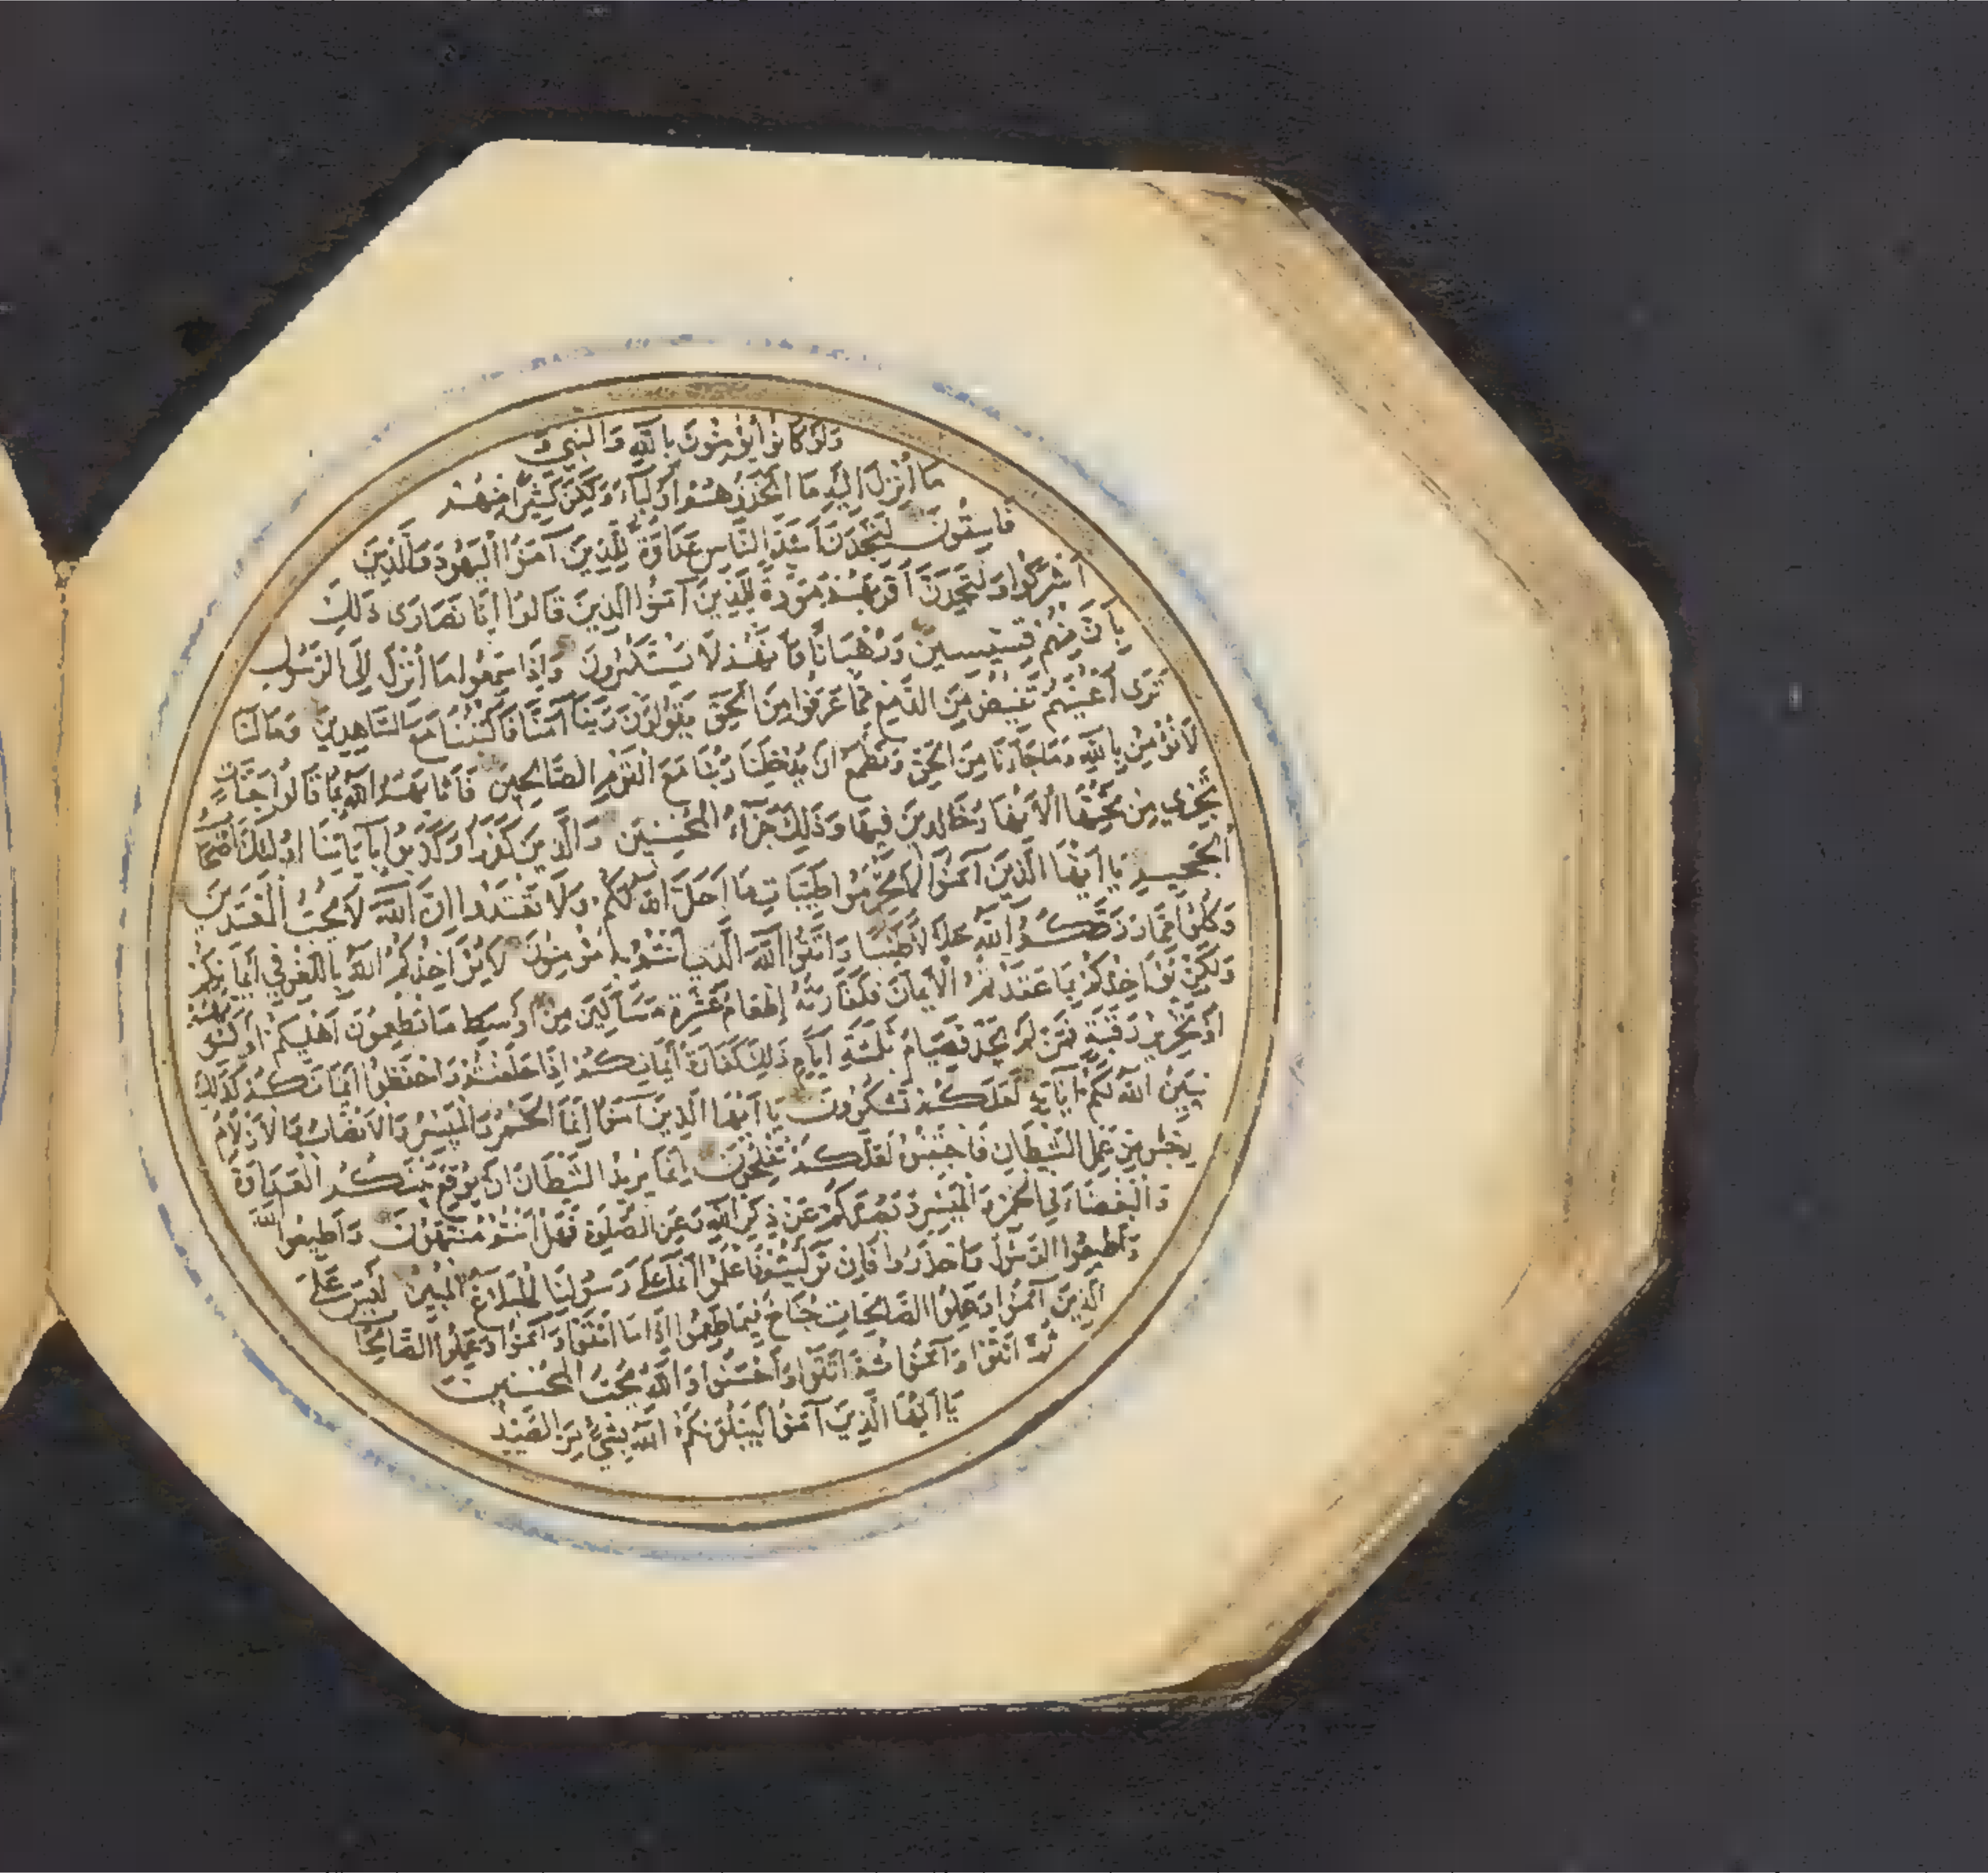 وَلَوْ كَانُوا يُؤْمِنُونَ بِاللَّهِ وَالنَّبِيِّ وَ
مَا أُنْزِلَ إِلَيْهِ مَا اتَّخَذُوهُمْ أَوْلِيَاءَ وَلَكِنَّ كَثِيرًا مِنْهُمْ
فَاسِقُونَ لَتَجِدَنَّ أَشَدَّ النَّاسِ عَدَاوَةً لِلَّذِينَ آمَنُوا الْيَهُودَ وَالَّذِينَ
أَشْرَكُوا وَلَتَجِدَنَّ أَقْرَبَهُمْ مَوَدَّةً لِلَّذِينَ آمَنُوا الَّذِينَ قَالُوا إِنَّا نَصَارَى ذَلِكَ
بِأَنَّ مِنْهُمْ قِسِّيسِينَ وَرُهْبَانًا وَأَنَّهُمْ لَا يَسْتَكْبِرُونَ وَإِذَا سَمِعُوا مَا أُنْزِلَ إِلَى الرَّسُولِ
تَرَى أَعْيُنَهُمْ تَفِيضُ مِنَ الدَّمْعِ مِمَّا عَرَفُوا مِنَ الْحَقِّ يَقُولُونَ رَبَّنَا آمَنَّا فَاكْتُبْنَا مَعَ الشَّاهِدِينَ وَمَا لَنَا
لَا نُؤْمِنُ بِاللَّهِ وَمَا جَاءَنَا مِنَ الْحَقِّ وَنَطْمَعُ أَنْ يُدْخِلَنَا رَبُّنَا مَعَ الْقَوْمِ الصَّالِحِينَ فَأَثَابَهُمُ اللَّهُ بِمَا قَالُوا جَنَّاتٍ
تَجْرِي مِنْ تَحْتِهَا الْأَنْهَارُ خَالِدِينَ فِيهَا وَذَلِكَ جَزَاءُ الْمُحْسِنِينَ وَالَّذِينَ كَفَرُوا وَكَذَّبُوا بِآيَاتِنَا أُولَئِكَ أَصْحَابُ
الْجَحِيمِ يَا أَيُّهَا الَّذِينَ آمَنُوا لَا تُحَرِّمُوا طَيِّبَاتِ مَا أَحَلَّ اللَّهُ لَكُمْ وَلَا تَعْتَدُوا إِنَّ اللَّهَ لَا يُحِبُّ الْمُعْتَدِينَ
وَكُلُوا مِمَّا رَزَقَكُمُ اللَّهُ حَلَالًا طَيِّبًا وَاتَّقُوا اللَّهَ الَّذِي أَنْتُمْ بِهِ مُؤْمِنُونَ لَا يُؤَاخِذُكُمُ اللَّهُ بِاللَّغْوِ فِي أَيْمَانِكُمْ
وَلَكِنْ يُؤَاخِذُكُمْ بِمَا عَقَّدْتُمُ الْأَيْمَانَ فَكَفَّارَتُهُ إِطْعَامُ عَشَرَةِ مَسَاكِينَ مِنْ أَوْسَطِ مَا تُطْعِمُونَ أَهْلِيكُمْ أَوْ كِسْوَتُهُمْ
أَوْ تَحْرِيرُ رَقَبَةٍ فَمَنْ لَمْ يَجِدْ فَصِيَامُ ثَلَثَةِ أَيَّامٍ ذَلِكَ كَفَّارَةُ أَيْمَانِكُمْ إِذَا حَلَفْتُمْ وَاحْفَظُوا أَيْمَانَكُمْ كَذَلِكَ
يُبَيِّنُ اللَّهُ لَكُمْ آيَاتِهِ لَعَلَّكُمْ تَشْكُرُونَ يَا أَيُّهَا الَّذِينَ آمَنُوا إِنَّمَا الْخَمْرُ وَالْمَيْسِرُ وَالْأَنْصَابُ وَالْأَزْلَامُ
رِجْسٌ مِنْ عَمَلِ الشَّيْطَانِ فَاجْتَنِبُوهُ لَعَلَّكُمْ تُفْلِحُونَ إِنَّمَا يُرِيدُ الشَّيْطَانُ أَنْ يُوقِعَ بَيْنَكُمُ الْعَدَاوَةَ
وَالْبَغْضَاءَ فِي الْخَمْرِ وَالْمَيْسِرِ وَيَصُدَّكُمْ عَنْ ذِكْرِ اللَّهِ وَعَنِ الصَّلَوةِ فَهَلْ أَنْتُمْ مُنْتَهُونَ وَأَطِيعُوا اللَّهَ
وَأَطِيعُوا الرَّسُولَ وَاحْذَرُوا فَإِنْ تَوَلَّيْتُمْ فَاعْلَمُوا أَنَّمَا عَلَى رَسُولِنَا الْبَلَاغُ الْمُبِينُ لَيْسَ عَلَى
الَّذِينَ آمَنُوا وَعَمِلُوا الصَّالِحَاتِ جُنَاحٌ فِيمَا طَعِمُوا إِذَا مَا اتَّقَوْا وَآمَنُوا وَعَمِلُوا الصَّالِحَاتِ
ثُمَّ اتَّقَوْا وَآمَنُوا ثُمَّ اتَّقَوْا وَأَحْسَنُوا وَاللَّهُ يُحِبُّ الْمُحْسِنِينَ
يَا أَيُّهَا الَّذِينَ آمَنُوا لَيَبْلُوَنَّكُمُ اللَّهُ بِشَيْءٍ مِنَ الصَّيْدِ